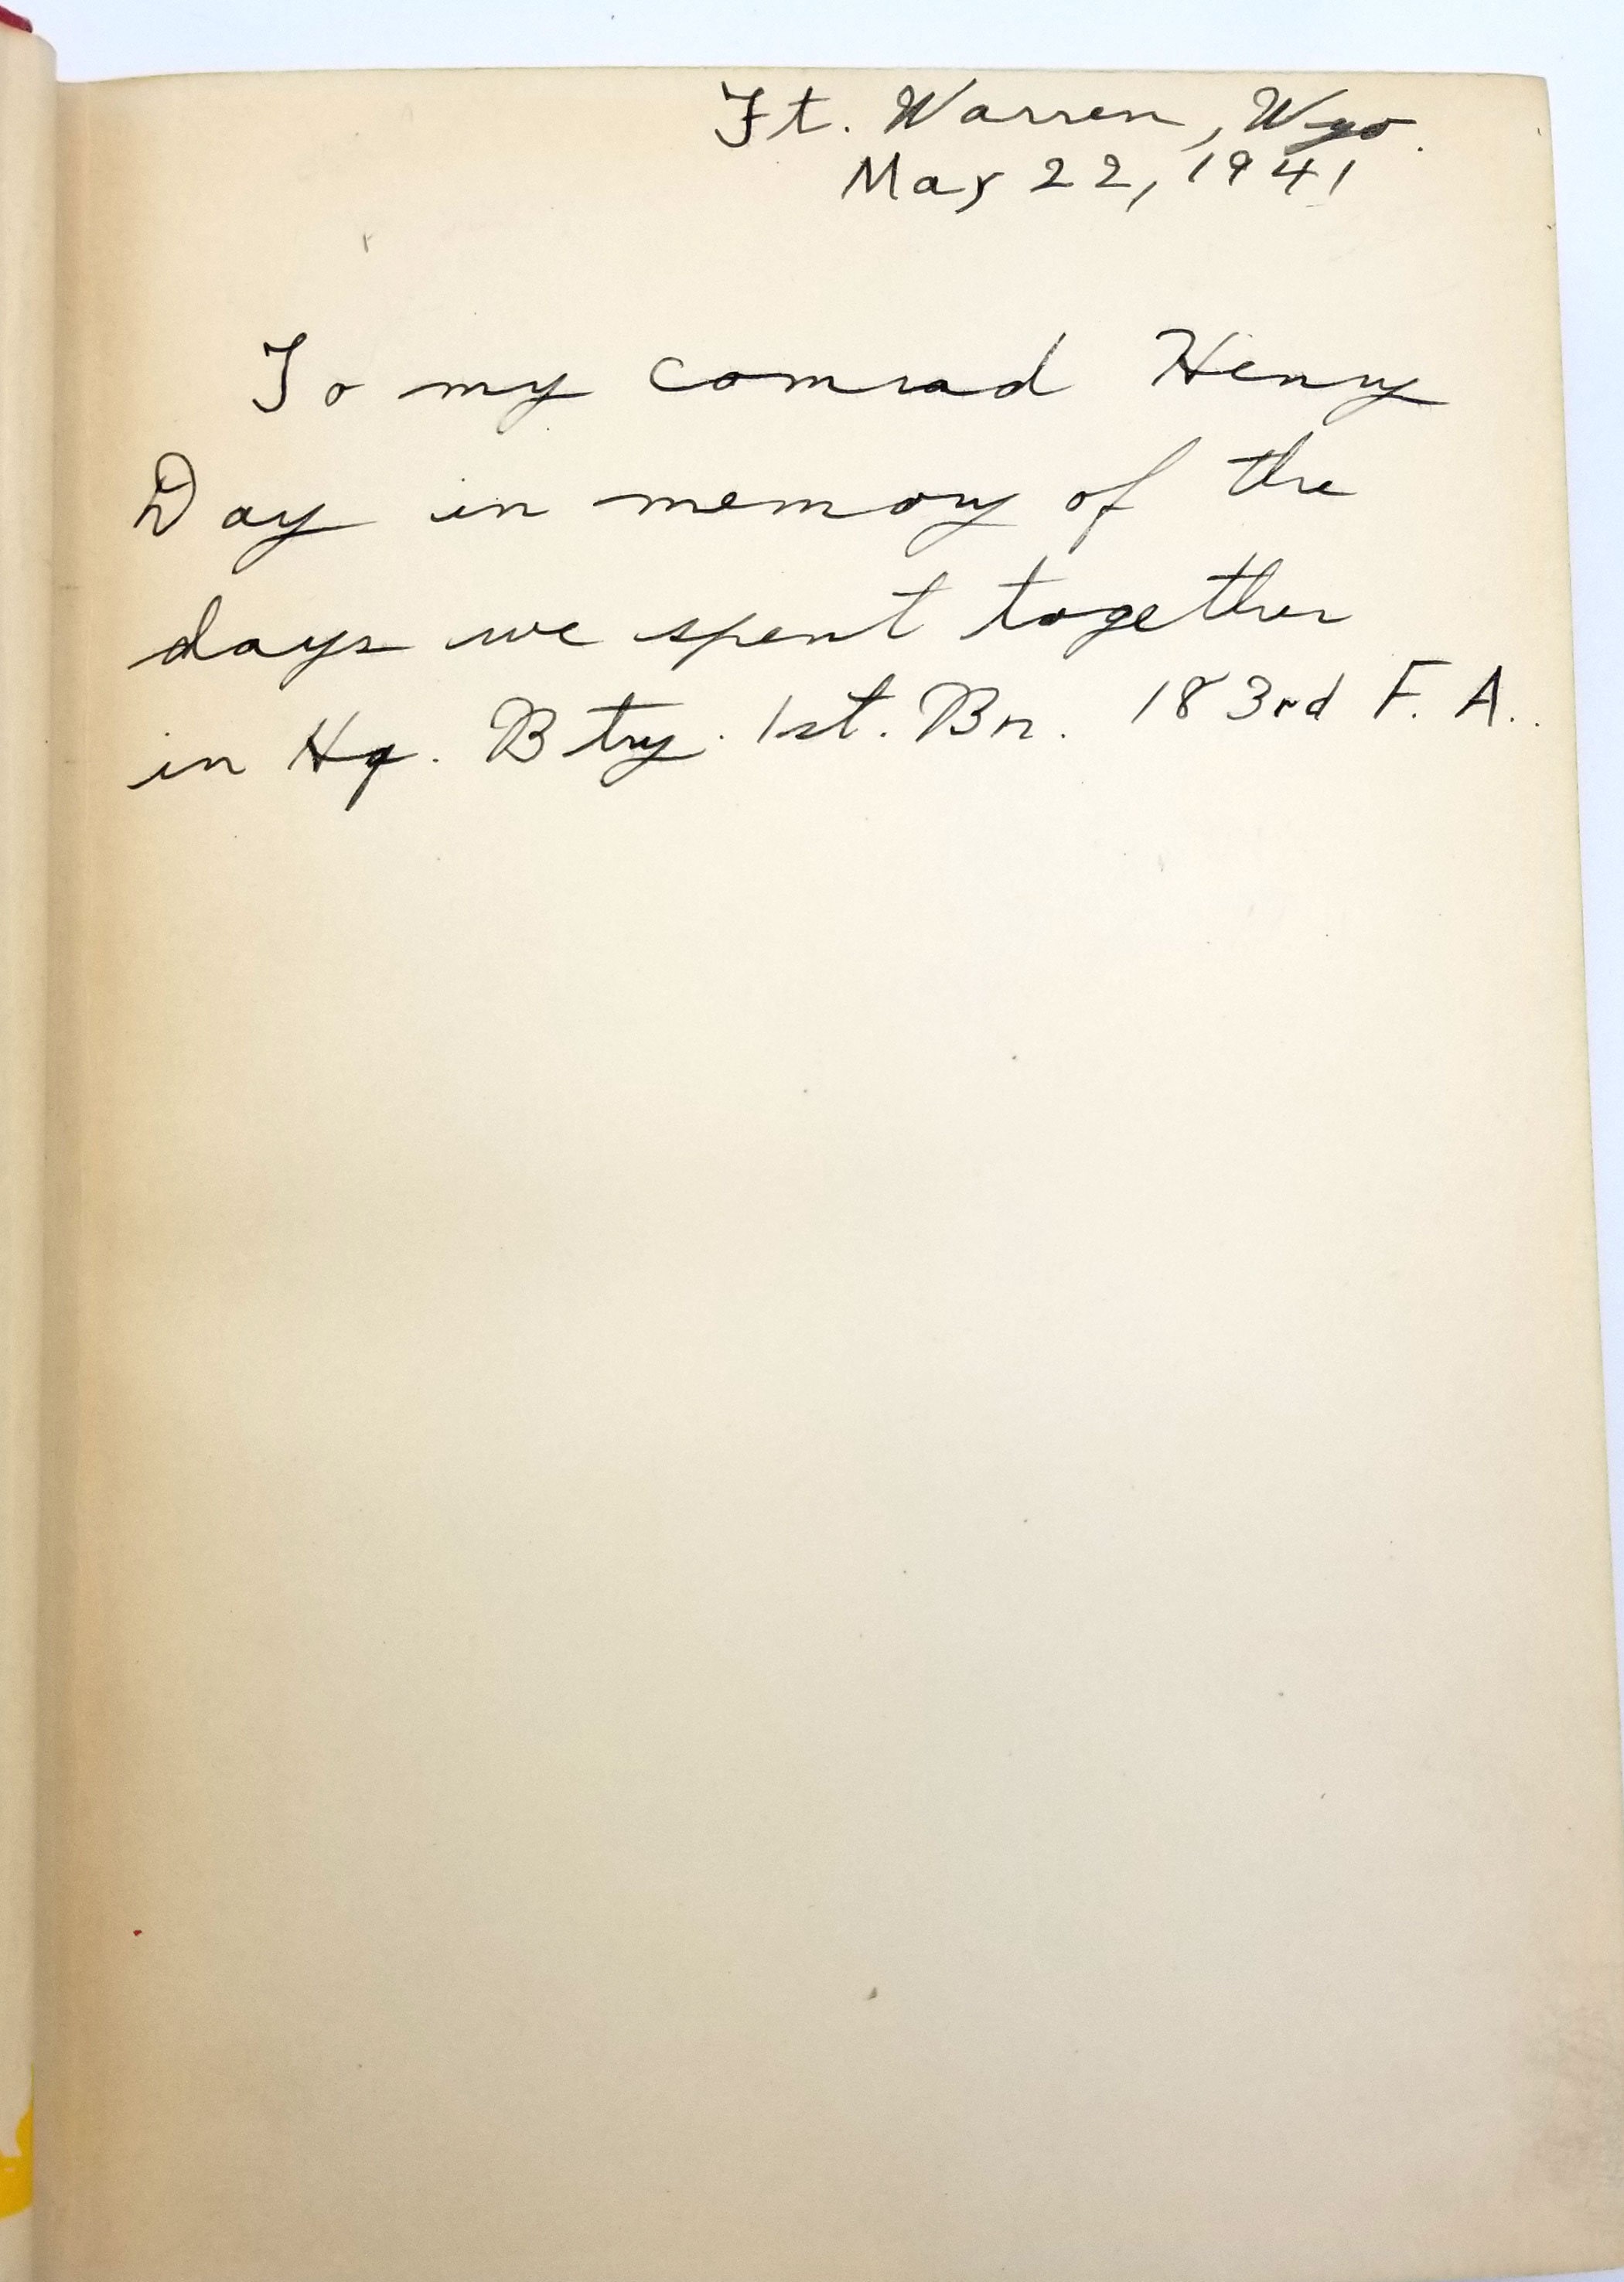 Ft. Warren, Wyo.
May 22, 1941
To my comrad Henry
Day in memory of the
days we spent together
in Hq. Btry. 1st. Bn. 183rd F. A..